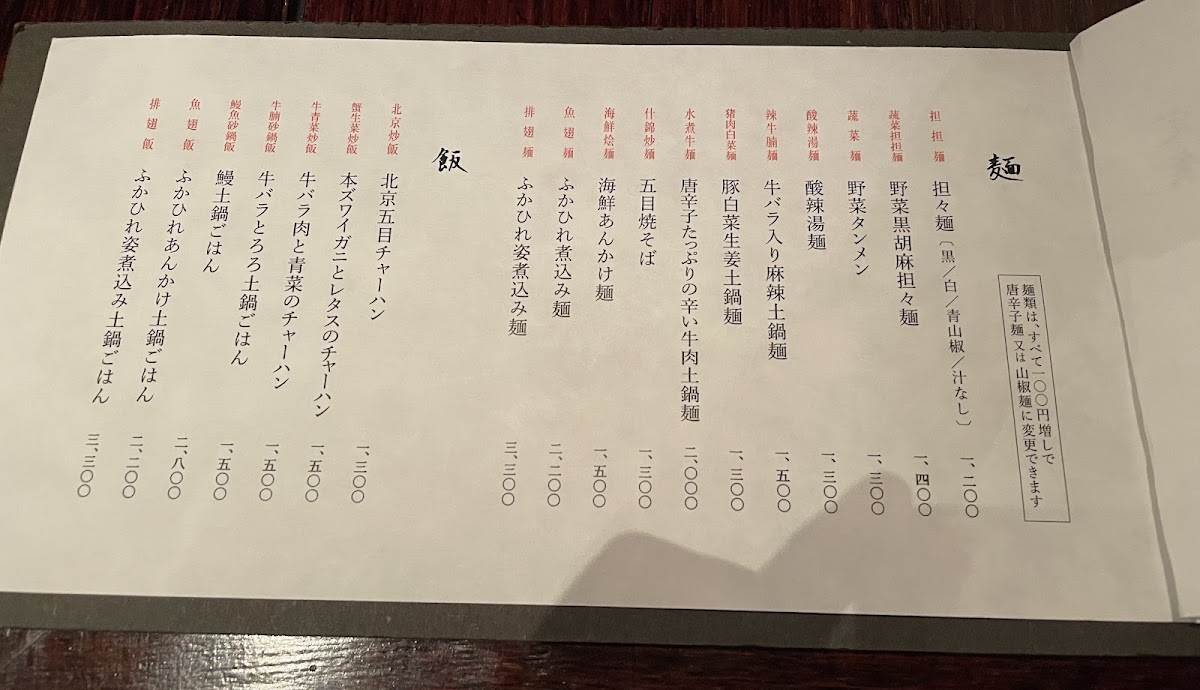 麺
麺類は、すべて一〇〇円増しで
唐辛子麺又は山椒麺に変更できます
担担麺 担々麺〔黒／白／青山椒／汁なし〕 一、二〇〇
蔬菜担担麺 野菜黒胡麻担々麺 一、四〇〇
蔬菜麺 野菜タンメン 一、三〇〇
酸辣湯麺 酸辣湯麺 一、三〇〇
辣牛腩麺 牛バラ入り麻辣土鍋麺 一、五〇〇
猪肉白菜麺 豚白菜生姜土鍋麺 一、三〇〇
水煮牛麺 唐辛子たっぷりの辛い牛肉土鍋麺 二、〇〇〇
什錦炒麺 五目焼そば 一、三〇〇
海鮮烩麺 海鮮あんかけ麺 一、五〇〇
魚翅麺 ふかひれ煮込み麺 二、二〇〇
排翅麺 ふかひれ姿煮込み麺 三、三〇〇
飯
北京炒飯 北京五目チャーハン 一、三〇〇
蟹生菜炒飯 本ズワイガニとレタスのチャーハン 一、五〇〇
牛青菜炒飯 牛バラ肉と青菜のチャーハン 一、五〇〇
牛腩砂鍋飯 牛バラとろろ土鍋ごはん 一、五〇〇
鰻魚砂鍋飯 鰻土鍋ごはん 二、八〇〇
魚翅飯 ふかひれあんかけ土鍋ごはん 二、二〇〇
排翅飯 ふかひれ姿煮込み土鍋ごはん 三、三〇〇